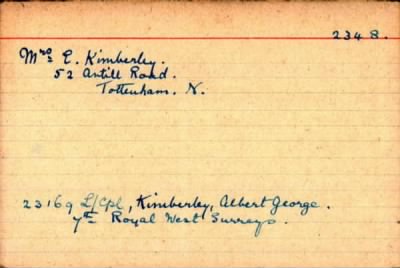 2348.
Mrs E. Kimberley.
52 Antill Road.
Tottenham. N.
23169 L/Cpl, Kimberley, Albert George.
7th Royal West Surreys.